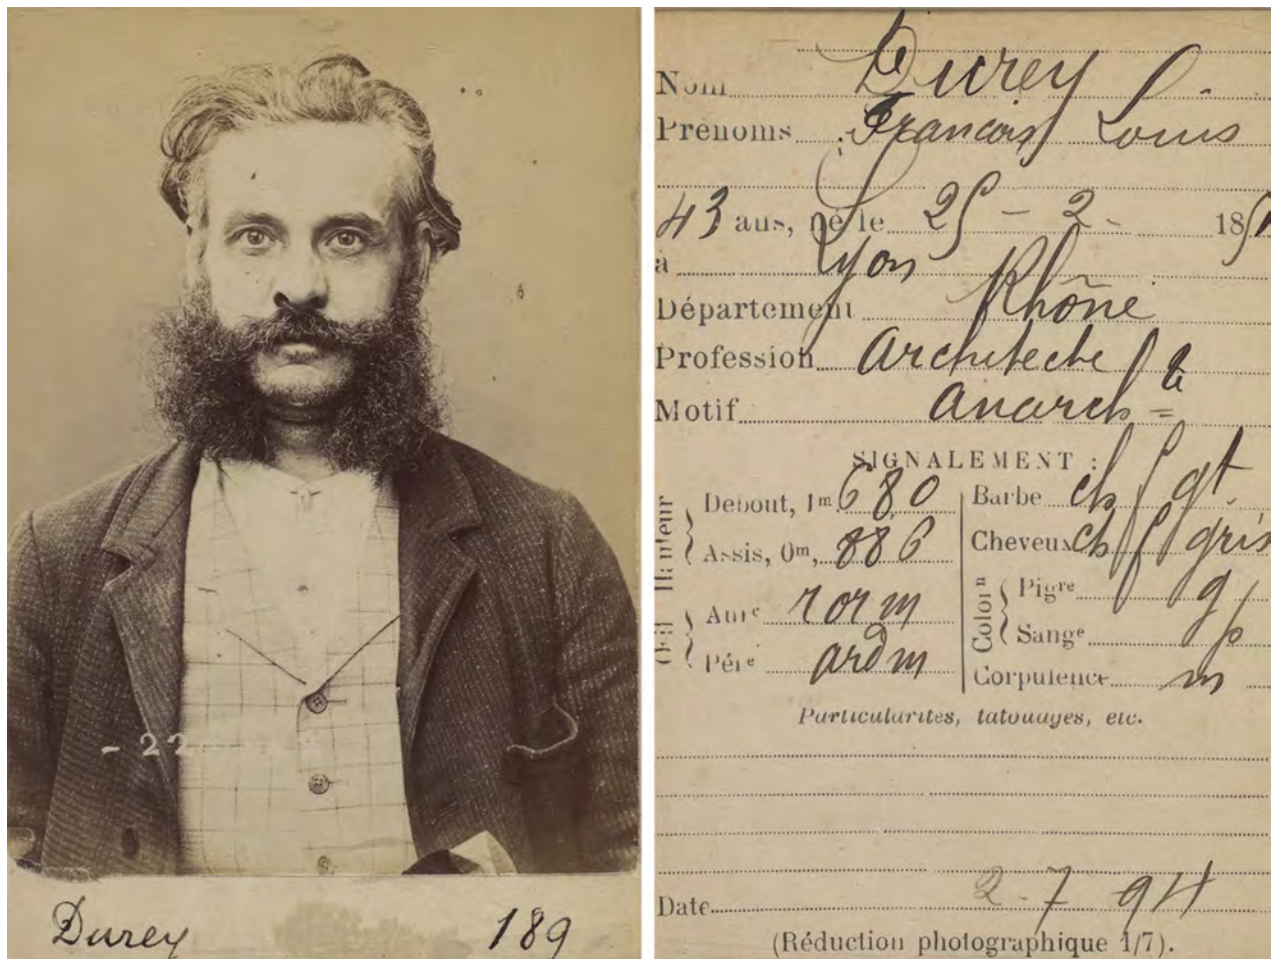 - 22
Durey 189
Nom Durey
Prénoms François Louis
43 ans, né le 25 - 2 - 1851
à Lyon
Département Rhône
Profession Architecte
Motif anarch
SIGNALEMENT :
Hauteur
Debout, 1m 680
Assis, 0m, 886
Œil
Aure r or m
Pére ard m
Barbe ch f gt.
Cheveux ch f gris
Colorn
Pigre g
Sange p
Corpulence m
Particularités, tatouages, etc.
Date 2-7 94
(Réduction photographique 1/7).